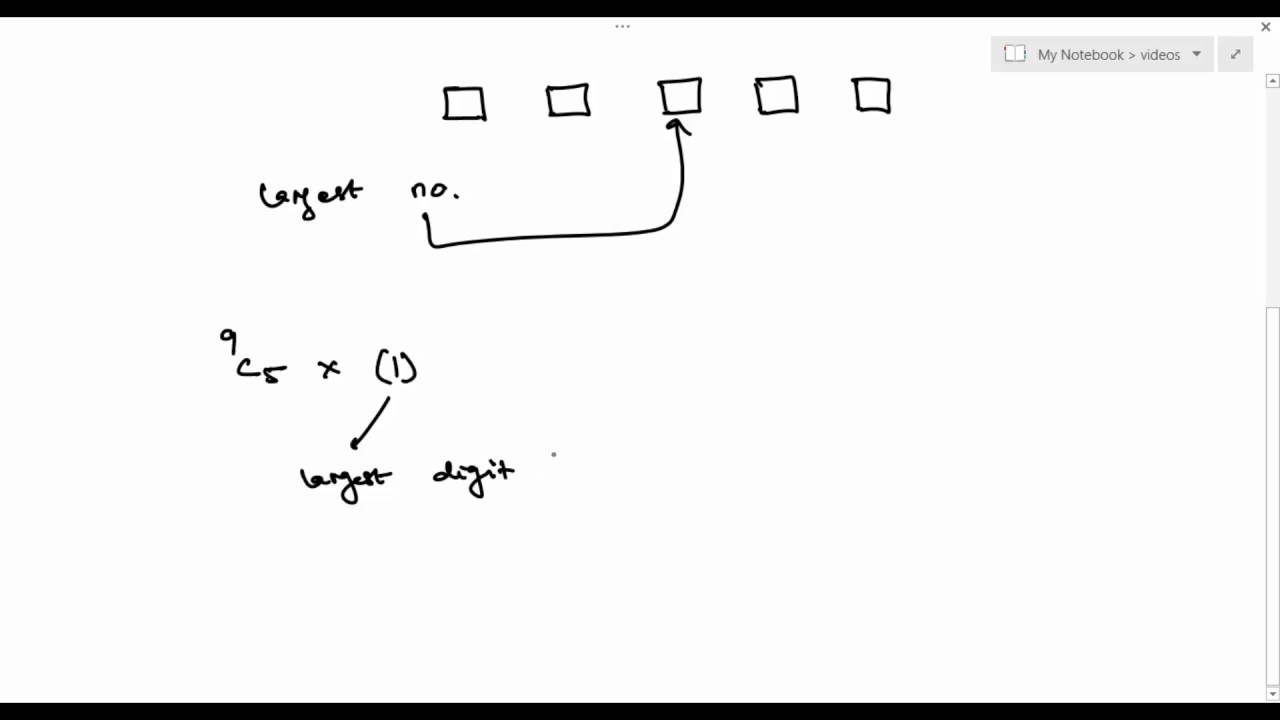 My Notebook > videos
largest no.
⁹C₅ × (1)
largest digit